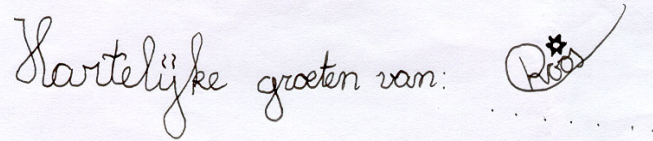 Hartelijke groeten van: Roos